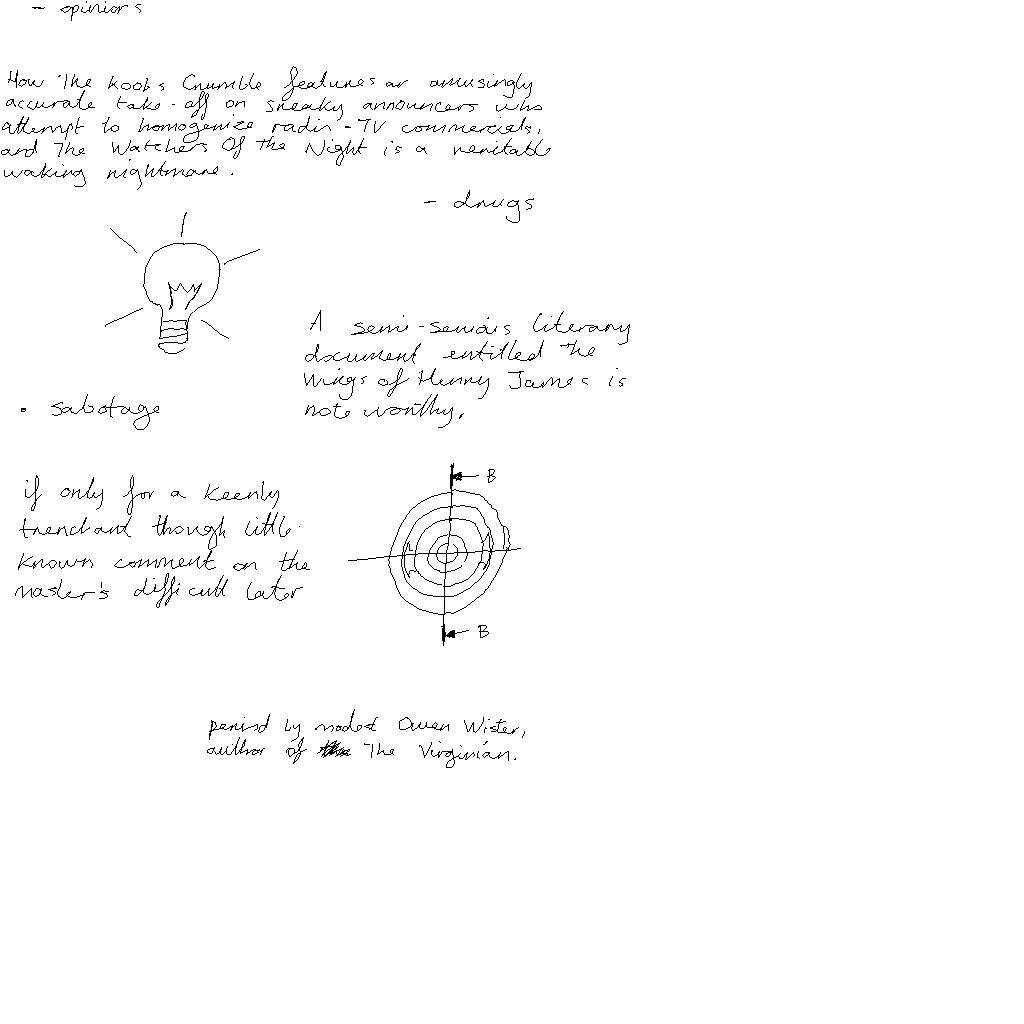 - opinions
How The Kookie Crumble features an amusingly
accurate take-off on sneaky announcers who
attempt to homogenize radio-TV commercials,
and The Watchers Of the Night is a veritable
waking nightmare.
- drugs
A semi-serious literary
document entitled The
Wings of Henry James is
noteworthy,
• sabotage
if only for a keenly
trenchant though little
known comment on the
master's difficult later
B
B
period by modest Owen Wister,
author of The Virginian.